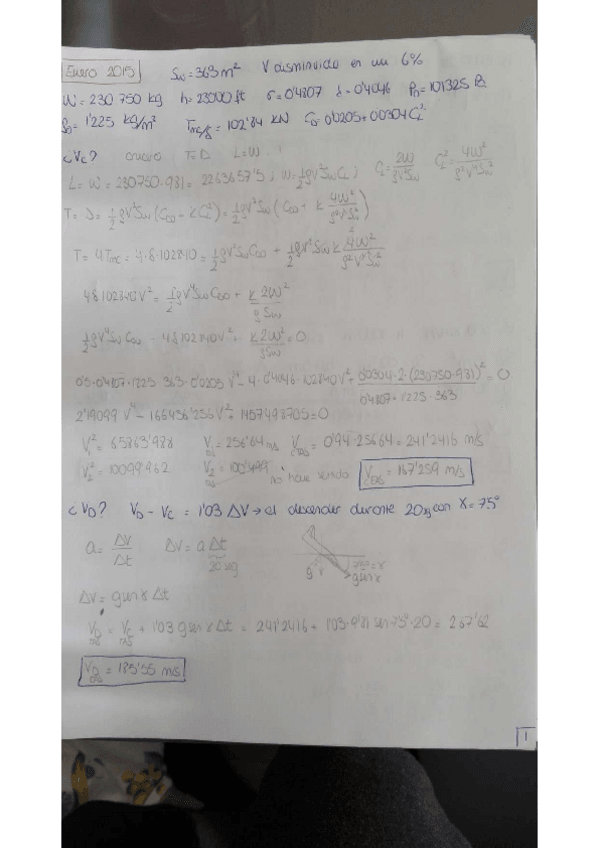 Enero 2015 Sw = 363 m² V disminuido en un 6%
W = 230 750 kg h = 23000 ft σ = 0'4807 δ = 0'4046 P₀ = 101325 Pa
ρ₀ = 1'225 kg/m³ Tmc/δ = 102'84 kN C_D = 0'0205 + 0'0304 C_L²
¿Vc? crucero T=D L=W
L = W = 230750·9'81 = 2263657'5 ; W = ½ρV²Sw C_L ; C_L = 2W/ρV²Sw C_L² = 4W²/ρ²V⁴Sw²
T = D = ½ρV²Sw (C_D0 + kC_L²) = ½ρV²Sw (C_D0 + k 4W²/ρ²V⁴Sw²)
T = 4Tmc = 4·δ·102840 = ½ρV²Sw C_D0 + ½ρV²Sw k 4W²/ρ²V⁴Sw²
4δ102840V² = ½ρV⁴Sw C_D0 + k 2W²/ρSw
½ρV⁴Sw C_D0 - 4δ102840V² + k 2W²/ρSw = 0
0'5·0'4807·1'225·363·0'0205 V⁴ - 4·0'4046·102840V² + 0'0304·2·(230750·9'81)²/0'4807·1'225·363 = 0
2'19099 V⁴ - 166436'256V² + 1457498705 = 0
V₁² = 65863'988 V₁ = 256'64 m/s V_C TAS = 0'94·256'64 = 241'2416 m/s
V₂² = 10099'962 V₂ = 100'499 no hace sentido V_C EAS = 167'259 m/s
¿V_D? V_D - V_C = 1'03 ΔV → al descender durante 20 sg con γ = 7'5°
a = ΔV/Δt ΔV = a Δt
20 sg
7'5° = γ
g γ g sen γ
ΔV = g sen γ Δt
V_D TAS = V_C TAS + 1'03 g sen γ Δt = 241'2416 + 1'03·9'81 sen 7'5°·20 = 267'62
V_D EAS = 185'55 m/s
1